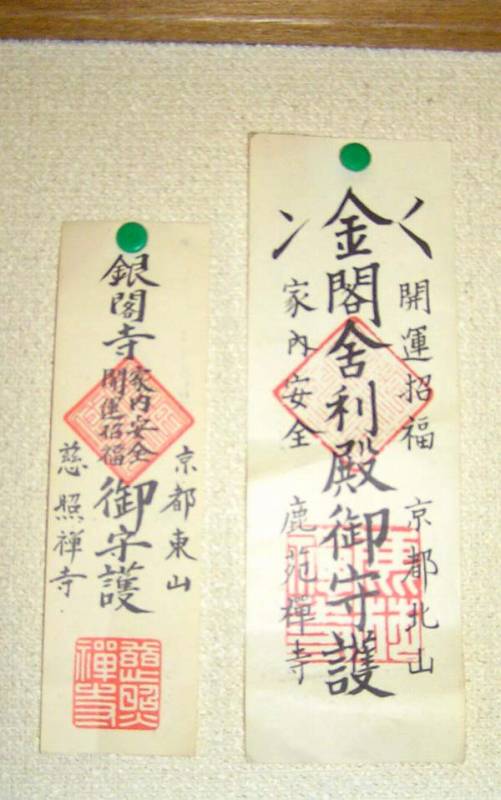 開運招福 京都北山
金閣舍利殿御守護
家内安全 鹿苑禅寺
京都東山
銀閣寺
家内安全
開運招福
御守護
慈照禅寺
慈照
禅寺